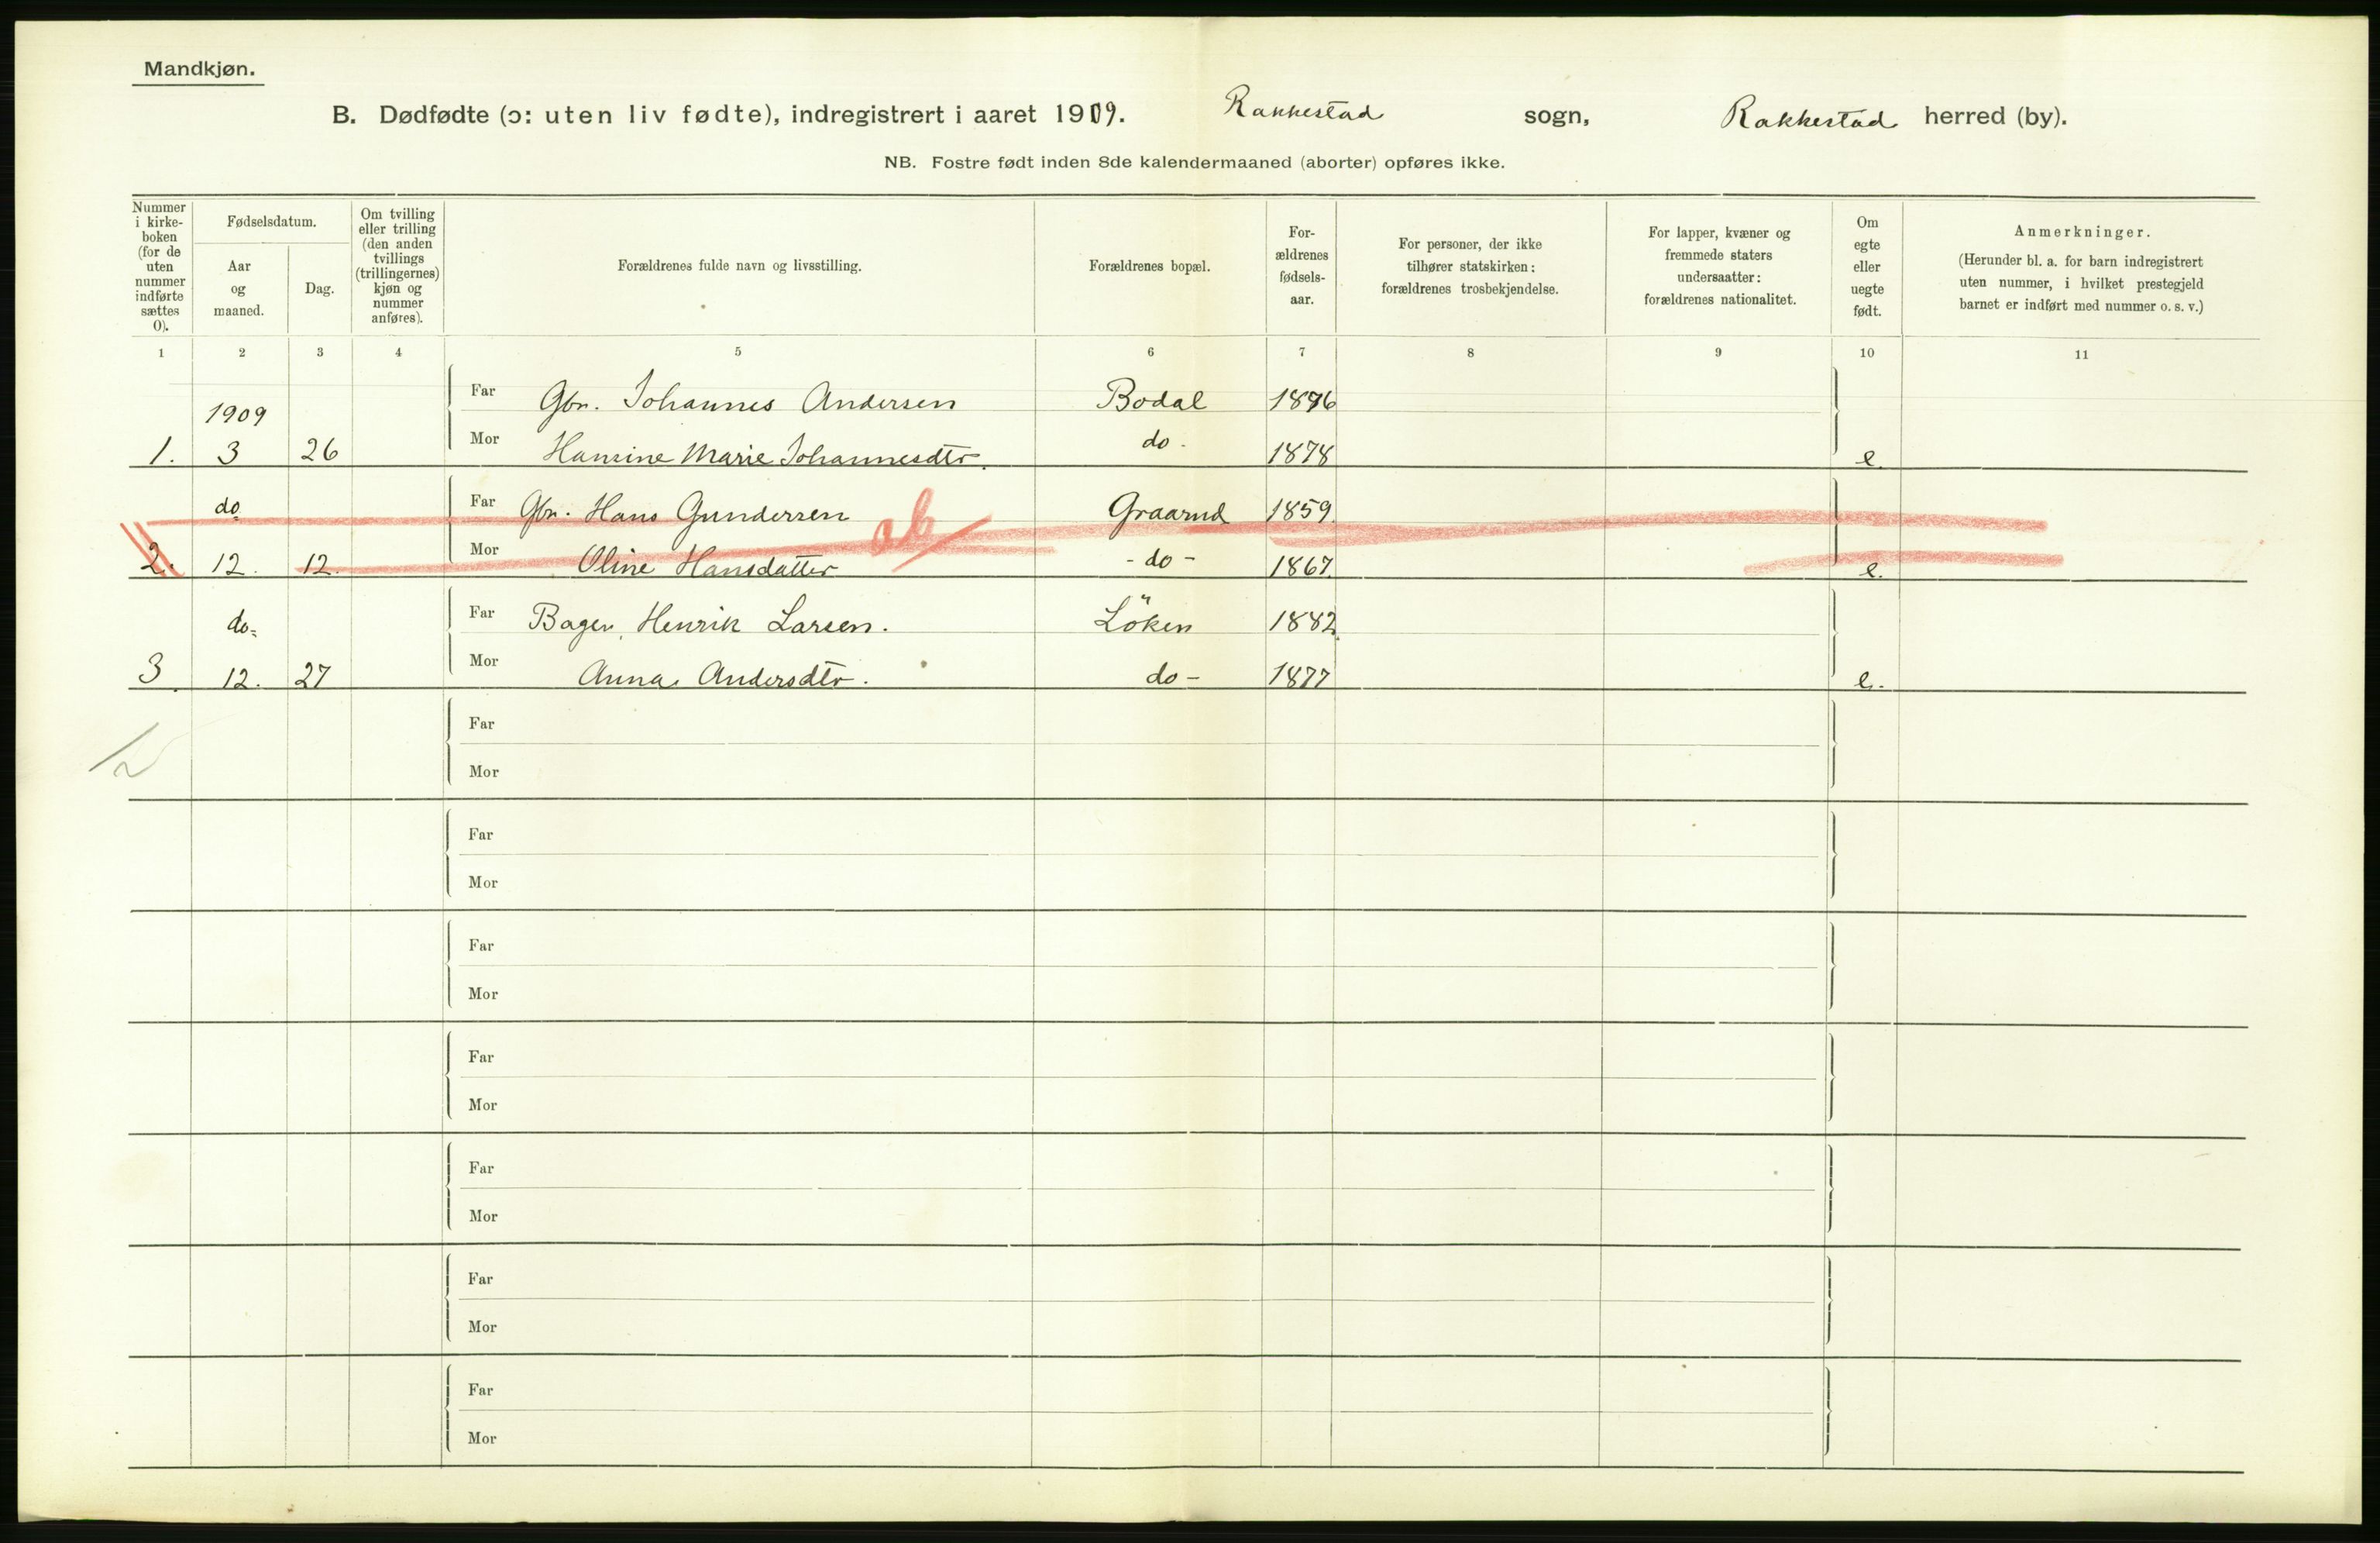 Mandkjøn.
B. Dødfødte (ɔ: uten liv fødte), indregistrert i aaret 1909. Rakkestad sogn, Rakkestad herred (by).
NB. Fostre født inden 8de kalendermaaned (aborter) opføres ikke.
Nummer i kirke-
boken
(for de
uten
nummer
indførte
sættes
0).
Fødselsdatum.
Aar
og
maaned.
Dag.
Om tvilling
eller trilling
(den anden
tvillings
(trillingernes)
kjøn og
nummer
anføres).
Forældrenes fulde navn og livsstilling.
Forældrenes bopæl.
For-
ældrenes
fødsels-
aar.
For personer, der ikke
tilhører statskirken:
forældrenes trosbekjendelse.
For lapper, kvæner og
fremmede staters
undersaatter:
forældrenes nationalitet.
Om
egte
eller
uegte
født.
Anmerkninger.
(Herunder bl. a. for barn indregistrert
uten nummer, i hvilket prestegjeld
barnet er indført med nummer o. s. v.)
1 2 3 4 5 6 7 8 9 10 11
1909 Far Gbr. Johannes Andersen Bodal 1876
1. 3 26 Mor Hansine Marie Johannesdtr. do. 1878 e.
do. Far Gbr. Hans Gundersen Graarud 1859.
ab
2. 12. 12. Mor Oline Hansdatter - do - 1867. e.
do. Far Bager, Henrik Larsen. Löken 1882.
3. 12. 27 Mor Anna Andersdtr. do - 1877 e.
Far
Mor
Far
Mor
Far
Mor
Far
Mor
Far
Mor
Far
Mor
Far
Mor